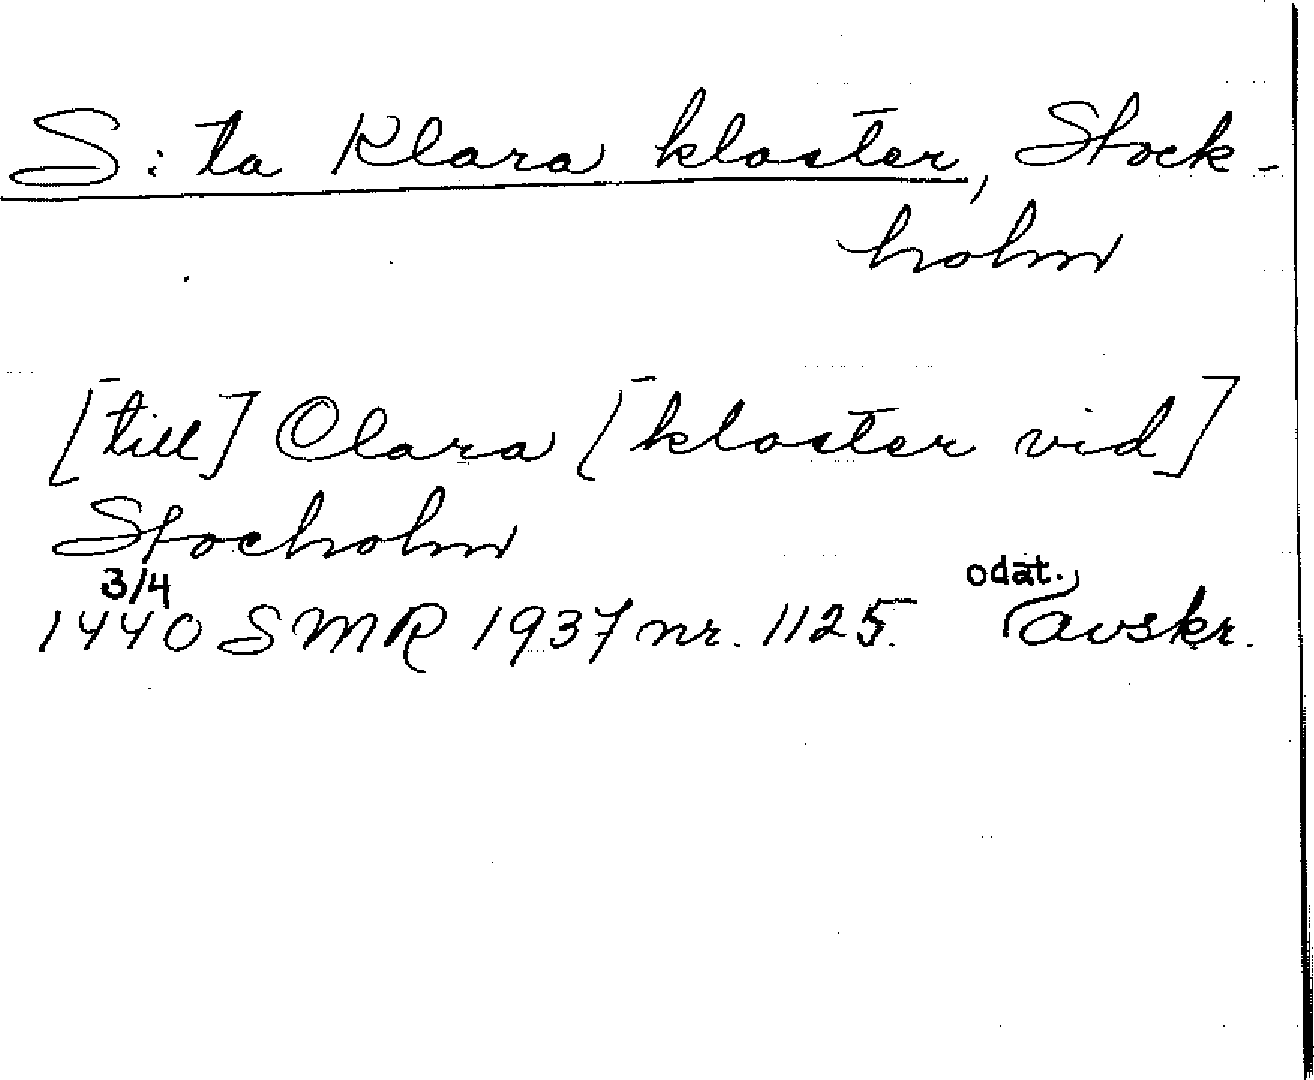 S:ta Klara kloster, Stock-
holm
[till] Clara [kloster vid]
Stocholm
3/4
1440 SMR 1937 nr. 1125. odat. avskr.